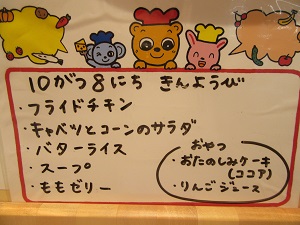 10がつ8にち きんようび
・フライドチキン
・キャベツとコーンのサラダ
・バターライス
・スープ
・ももゼリー
おやつ
・おたのしみケーキ
(ココア)
・りんごジュース